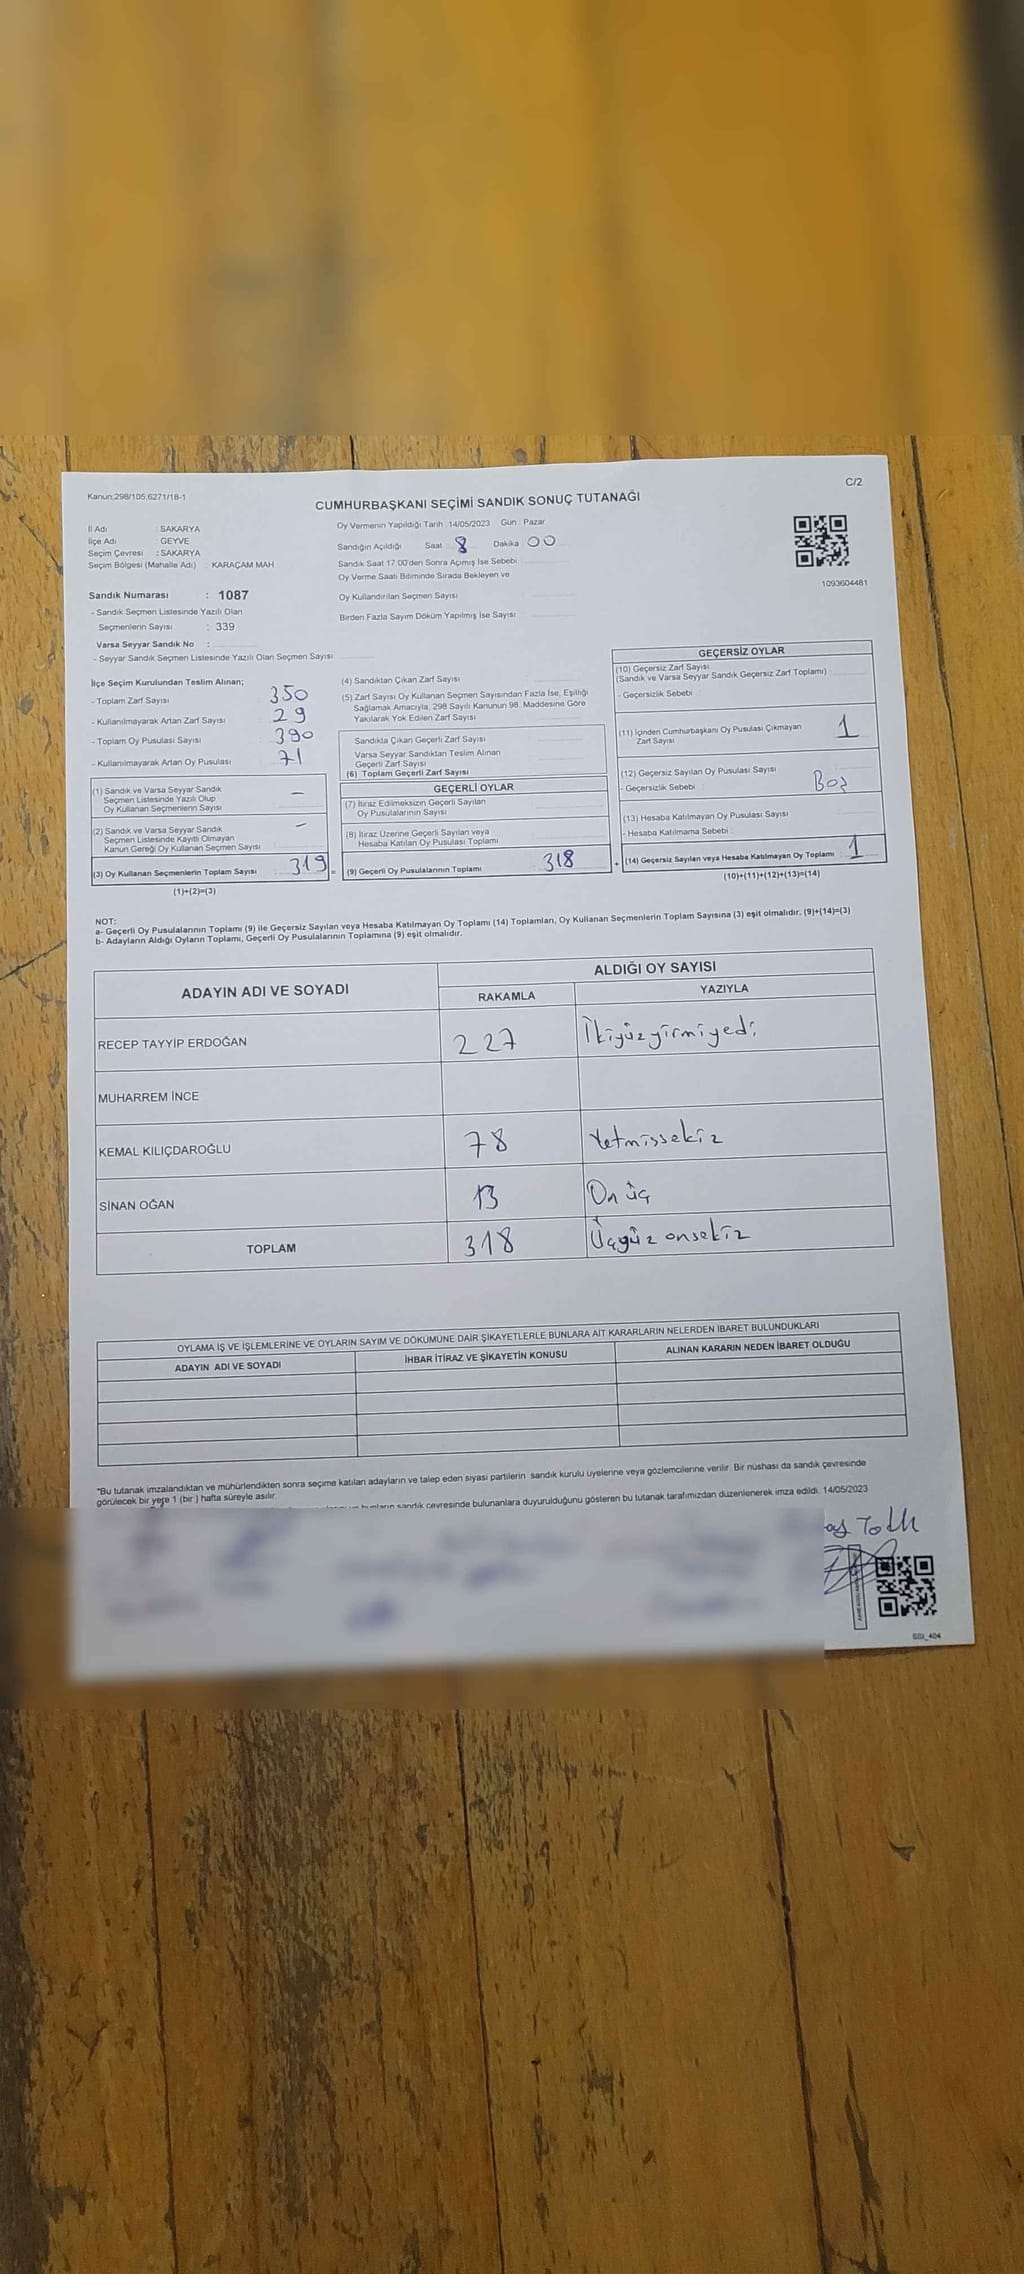 Kanun;298/105,6271/18-1
C/2
CUMHURBAŞKANI SEÇİMİ SANDIK SONUÇ TUTANAĞI
İl Adı : SAKARYA
İlçe Adı : GEYVE
Seçim Çevresi : SAKARYA
Seçim Bölgesi (Mahalle Adı) : KARAÇAM MAH
Sandık Numarası : 1087
- Sandık Seçmen Listesinde Yazılı Olan
Seçmenlerin Sayısı : 339
Varsa Seyyar Sandık No :
- Seyyar Sandık Seçmen Listesinde Yazılı Olan Seçmen Sayısı
Oy Vermenin Yapıldığı Tarih 14/05/2023 Gün Pazar
Sandığın Açıldığı Saat 8 Dakika 00
Sandık Saat 17.00'den Sonra Açımış İse Sebebi
Oy Verme Saati Bitiminde Sırada Bekleyen ve
Oy Kullandırılan Seçmen Sayısı
Birden Fazla Sayım Döküm Yapılmış İse Sayısı
1093604481
İlçe Seçim Kurulundan Teslim Alınan;
- Toplam Zarf Sayısı 350
- Kullanılmayarak Artan Zarf Sayısı 29
- Toplam Oy Pusulası Sayısı 390
- Kullanılmayarak Artan Oy Pusulası 71
(1) Sandık ve Varsa Seyyar Sandık
Seçmen Listesinde Yazılı Olup
Oy Kullanan Seçmenlerin Sayısı –
(2) Sandık ve Varsa Seyyar Sandık
Seçmen Listesinde Kayıtlı Olmayan
Kanun Gereği Oy Kullanan Seçmen Sayısı –
(3) Oy Kullanan Seçmenlerin Toplam Sayısı 319 =
(1)+(2)=(3)
(4) Sandıktan Çıkan Zarf Sayısı
(5) Zarf Sayısı Oy Kullanan Seçmen Sayısından Fazla İse, Eşitliği
Sağlamak Amacıyla, 298 Sayılı Kanunun 98. Maddesine Göre
Yakılarak Yok Edilen Zarf Sayısı
Sandıkta Çıkan Geçerli Zarf Sayısı
Varsa Seyyar Sandıktan Teslim Alınan
Geçerli Zarf Sayısı
(6) Toplam Geçerli Zarf Sayısı
GEÇERLİ OYLAR
(7) İtiraz Edilmeksizin Geçerli Sayılan
Oy Pusulalarının Sayısı
(8) İtiraz Üzerine Geçerli Sayılan veya
Hesaba Katılan Oy Pusulası Toplamı
(9) Geçerli Oy Pusulalarının Toplamı 318 +
GEÇERSİZ OYLAR
(10) Geçersiz Zarf Sayısı
(Sandık ve Varsa Seyyar Sandık Geçersiz Zarf Toplamı)
- Geçersizlik Sebebi
(11) İçinden Cumhurbaşkanı Oy Pusulası Çıkmayan
Zarf Sayısı 1
(12) Geçersiz Sayılan Oy Pusulası Sayısı
- Geçersizlik Sebebi Boş
(13) Hesaba Katılmayan Oy Pusulası Sayısı
- Hesaba Katılmama Sebebi
(14) Geçersiz Sayılan veya Hesaba Katılmayan Oy Toplamı 1
(10)+(11)+(12)+(13)=(14)
NOT:
a- Geçerli Oy Pusulalarının Toplamı (9) ile Geçersiz Sayılan veya Hesaba Katılmayan Oy Toplamı (14) Toplamları, Oy Kullanan Seçmenlerin Toplam Sayısına (3) eşit olmalıdır. (9)+(14)=(3)
b- Adayların Aldığı Oyların Toplamı, Geçerli Oy Pusulalarının Toplamına (9) eşit olmalıdır.
ADAYIN ADI VE SOYADI
ALDIĞI OY SAYISI
RAKAMLA YAZIYLA
RECEP TAYYİP ERDOĞAN 227 İkiyüzyirmiyedi
MUHARREM İNCE
KEMAL KILIÇDAROĞLU 78 Yetmişsekiz
SİNAN OĞAN 13 On üç
TOPLAM 318 Üçyüz onsekiz
OYLAMA İŞ VE İŞLEMLERİNE VE OYLARIN SAYIM VE DÖKÜMÜNE DAİR ŞİKAYETLERLE BUNLARA AİT KARARLARIN NELERDEN İBARET BULUNDUKLARI
ADAYIN ADI VE SOYADI İHBAR İTİRAZ VE ŞİKAYETİN KONUSU ALINAN KARARIN NEDEN İBARET OLDUĞU
*Bu tutanak imzalandıktan ve mühürlendikten sonra seçime katılan adayların ve talep eden siyasi partilerin sandık kurulu üyelerine veya gözlemcilerine verilir. Bir nüshası da sandık çevresinde
görülecek bir yere 1 (bir ) hafta süreyle asılır.
bunların sandık çevresinde bulunanlara duyurulduğunu gösteren bu tutanak tarafımızdan düzenlenerek imza edildi. 14/05/2023